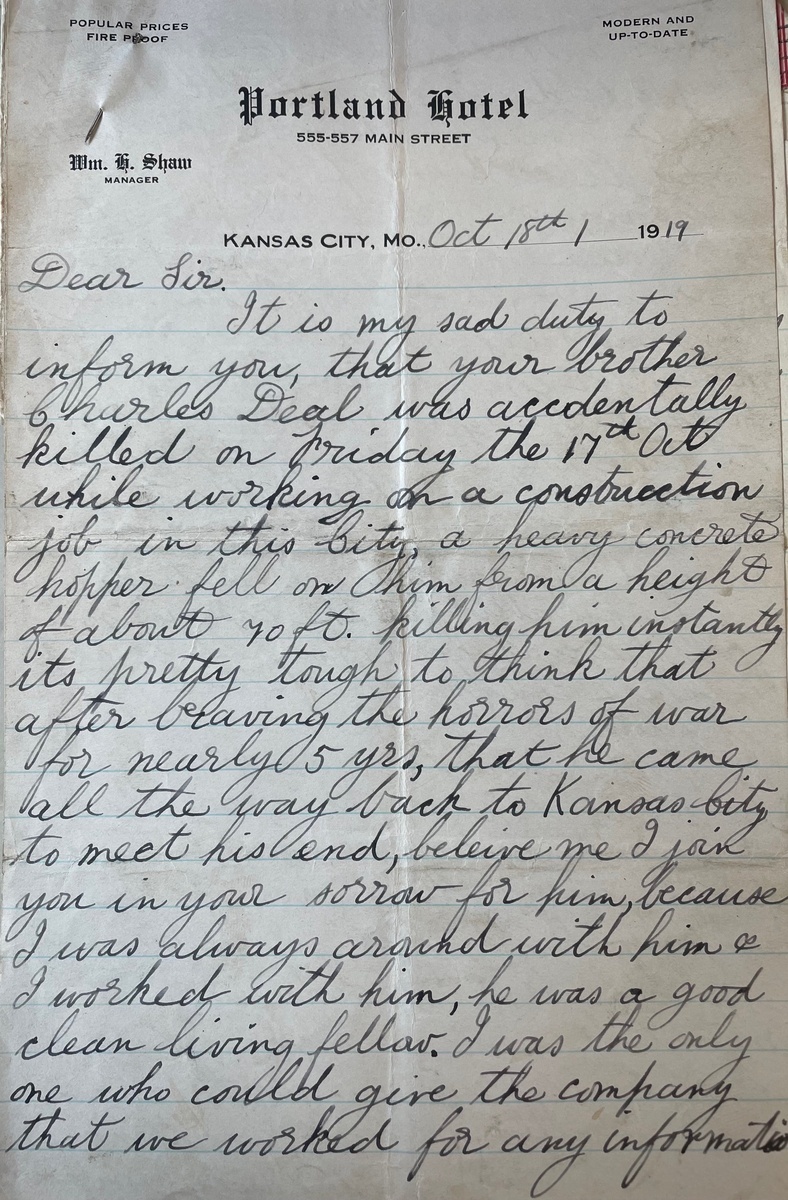 POPULAR PRICES
FIRE PROOF
MODERN AND
UP-TO-DATE
Portland Hotel
555-557 MAIN STREET
Wm. H. Shaw
MANAGER
KANSAS CITY, MO., Oct 18th 1 1919
Dear Sir.
It is my sad duty to
inform you, that your brother
Charles Deal was accdentally
killed on Friday the 17th Oct
while working on a construction
job in this City, a heavy concrete
hopper fell on him from a height
of about 70 ft. killing him instantly
its pretty tough to think that
after braving the horrors of war
for nearly 5 yrs, that he came
all the way back to Kansas City
to meet his end, beleive me I join
you in your sorrow for him, because
I was always around with him &
I worked with him, he was a good
clean living fellow. I was the only
one who could give the company
that we worked for any informatio